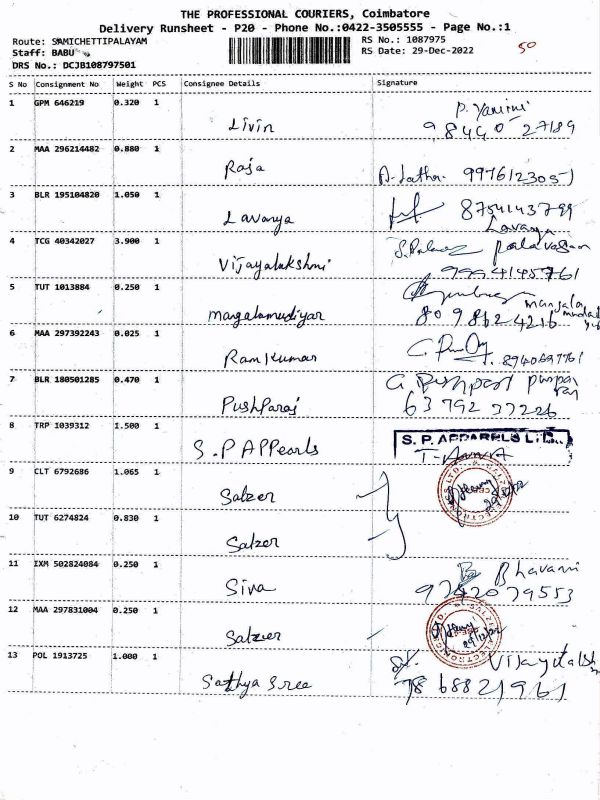 THE PROFESSIONAL COURIERS, Coimbatore
Delivery Runsheet - P20 - Phone No.:0422-3505555 - Page No.:1
Route: SAMICHETTIPALAYAM RS No.: 1087975
Staff: BABU RS Date: 29-Dec-2022 50
DRS No.: DCJB108797501
S No Consignment No Weight PCS Consignee Details Signature
1 GPM 646219 0.320 1 Livin P. Yamini
98440 27189
2 MAA 296214482 0.880 1 Raja A. Latha 9976123051
3 BLR 195104820 1.050 1 Lavanya 8754143799
Lavanya
4 TCG 40342027 3.900 1 Vijayalakshmi
5 TUT 1013884 0.250 1 Mangalamudiyar mangala
809862 4216
6 MAA 297392243 0.025 1 Ramkumar
7 BLR 180501285 0.470 1 Pushparaj
63792 37226
8 TRP 1039312 1.500 1 S.P APPearls S. P. APPARELS
9 CLT 6792686 1.065 1 Salzer
10 TUT 6274824 0.830 1 Salzer
11 IXM 502824084 0.250 1 Siva Bhavani
9742079553
12 MAA 297831004 0.250 1 Salzer
13 POL 1913725 1.000 1 Sathya Sree
7868821961